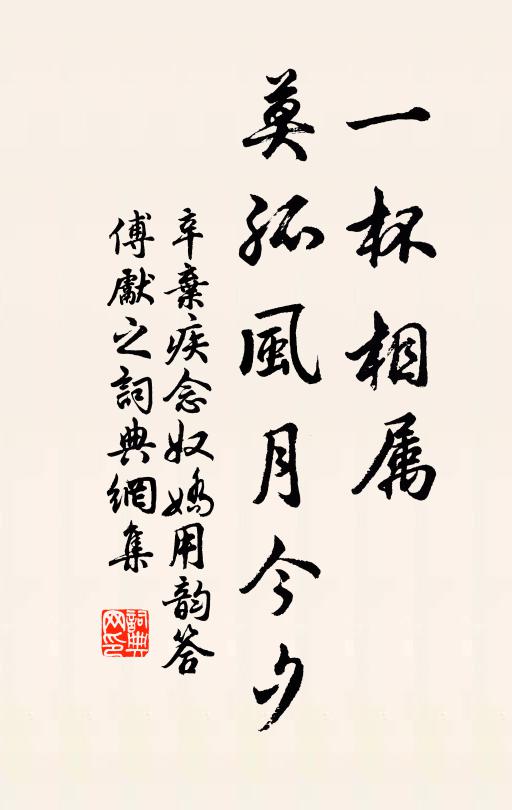 一杯相属
莫孤風月今夕
辛棄疾念奴嬌用韵答
傅獻之詞典網集
詞典网印